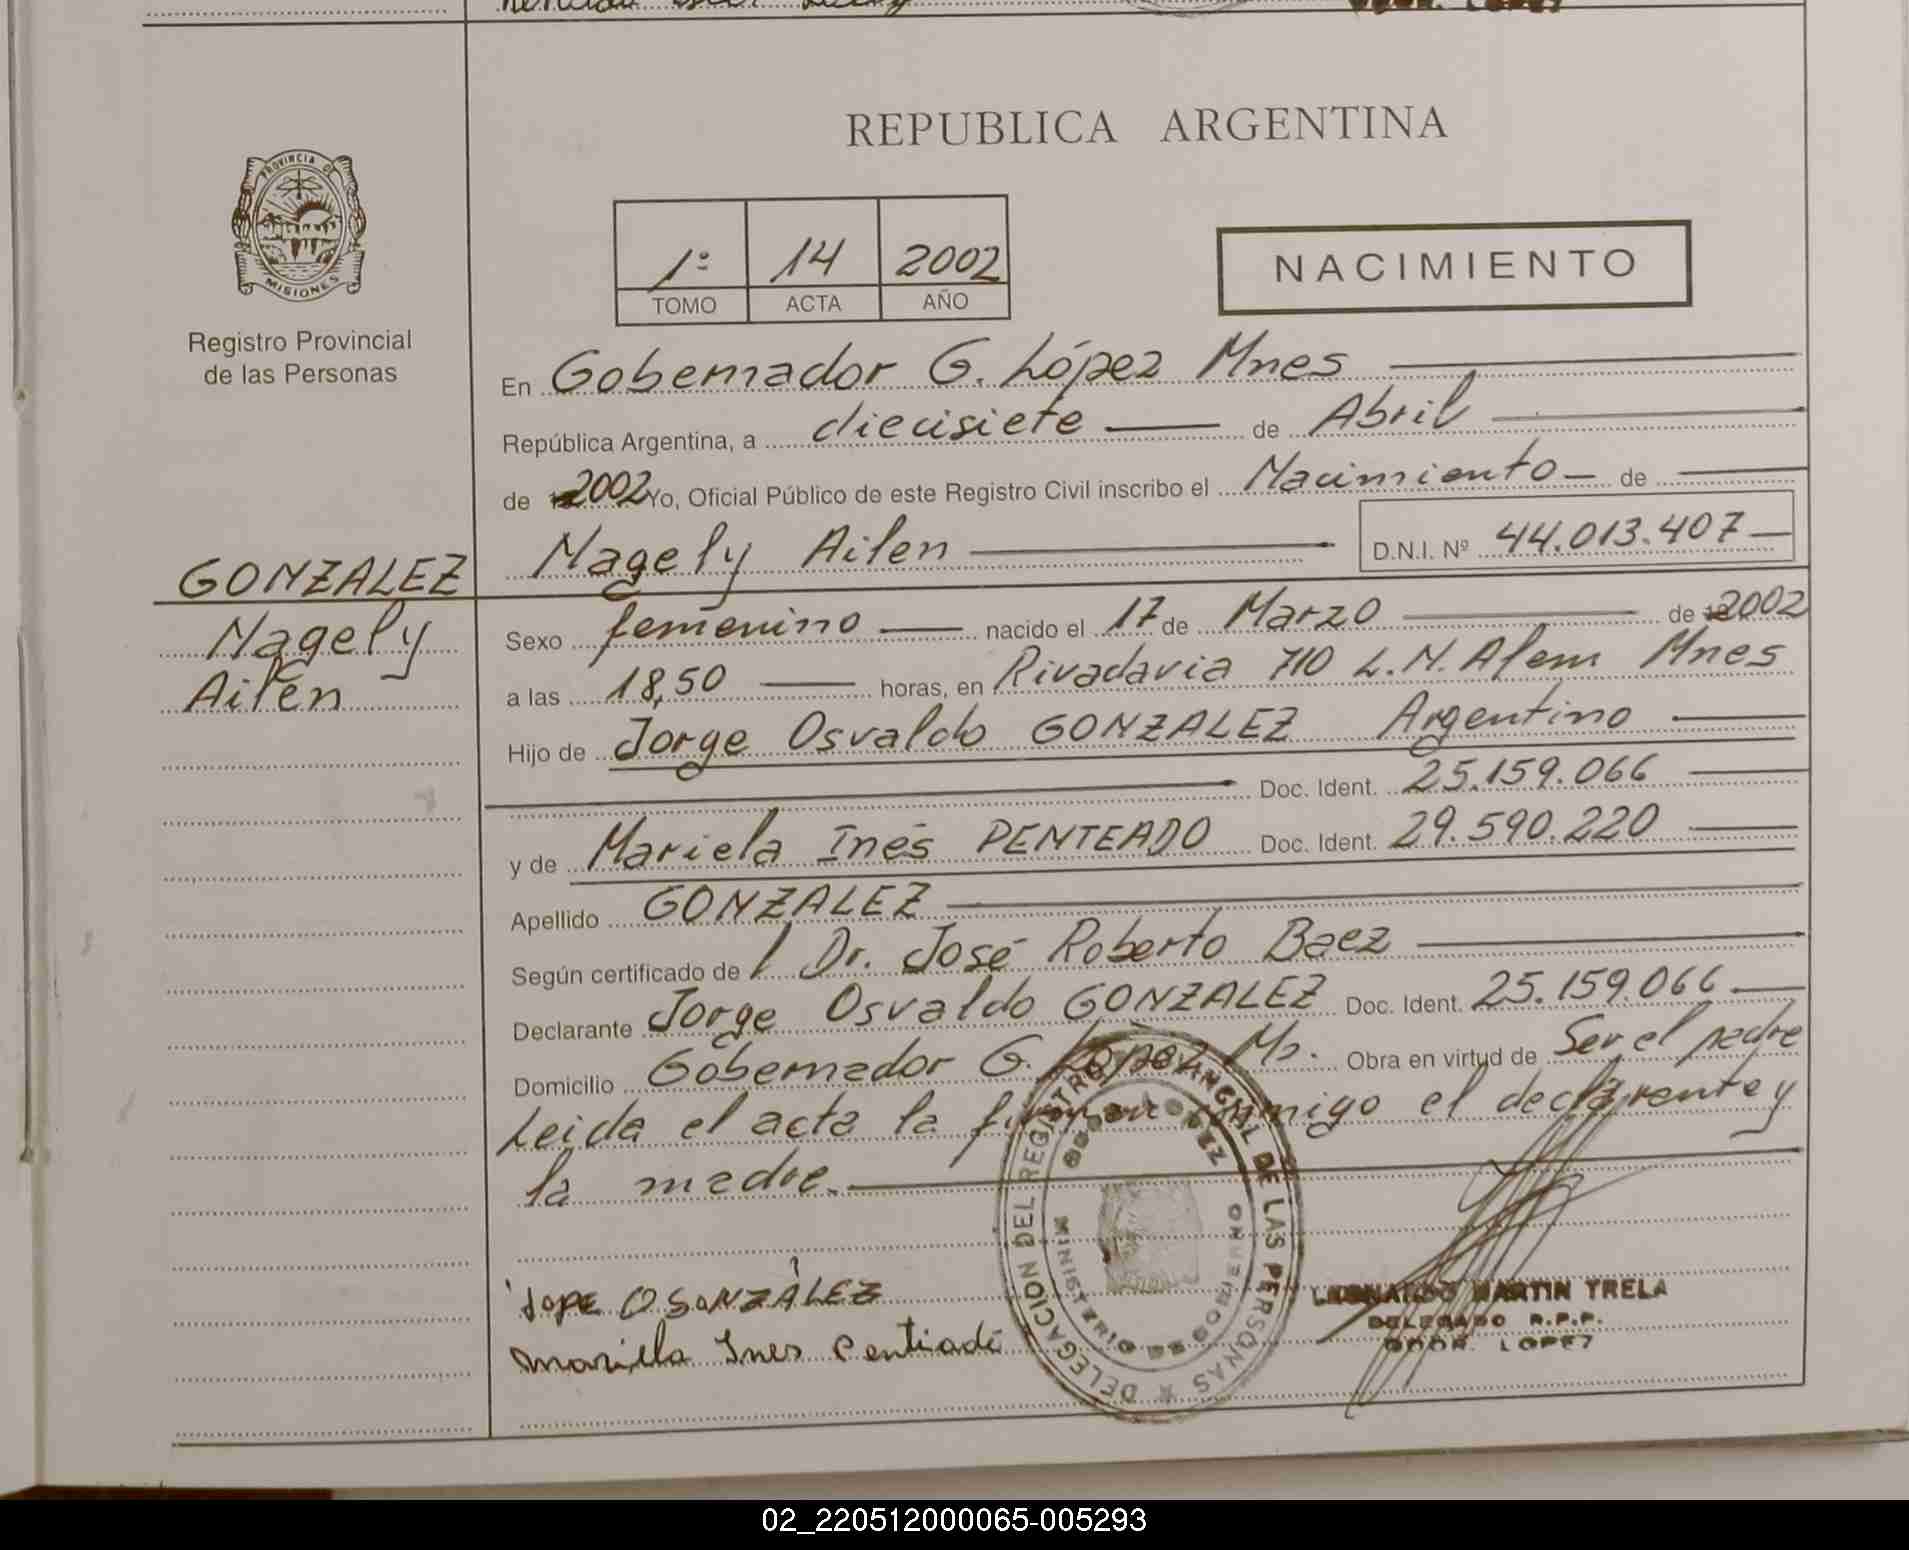 REPUBLICA ARGENTINA
PROVINCIA DE
MISIONES
Registro Provincial
de las Personas
1º 14 2002
TOMO ACTA AÑO
NACIMIENTO
En Gobernador G. López Mnes
República Argentina, a diecisiete de Abril
de 2002 Yo, Oficial Público de este Registro Civil inscribo el Nacimiento de
Nagely Ailen D.N.I. Nº 44.013.407
GONZALEZ
Nagely
Ailen
Sexo femenino nacido el 17 de Marzo de 2002
a las 18,50 horas, en Rivadavia 710 L.N. Alem Mnes
Hijo de Jorge Osvaldo GONZALEZ Argentino
Doc. Ident. 25.159.066
y de Mariela Inés PENTEADO Doc. Ident. 29.590.220
Apellido GONZALEZ
Según certificado de Dr. José Roberto Baez
Declarante Jorge Osvaldo GONZALEZ Doc. Ident. 25.159.066
Domicilio Gobernador G. López Ms. Obra en virtud de Ser el padre
Leida el acta la firman conmigo el declarante y
la madre.
DELEGACION DEL REGISTRO PROVINCIAL DE LAS PERSONAS
LOPEZ
MINISTERIO DE GOBIERNO
JORGE O GONZÁLEZ
Mariela Ines
LEONARDO MARTIN TRELA
DELEGADO R.P.P.
GDOR. LOPEZ
02_220512000065-005293